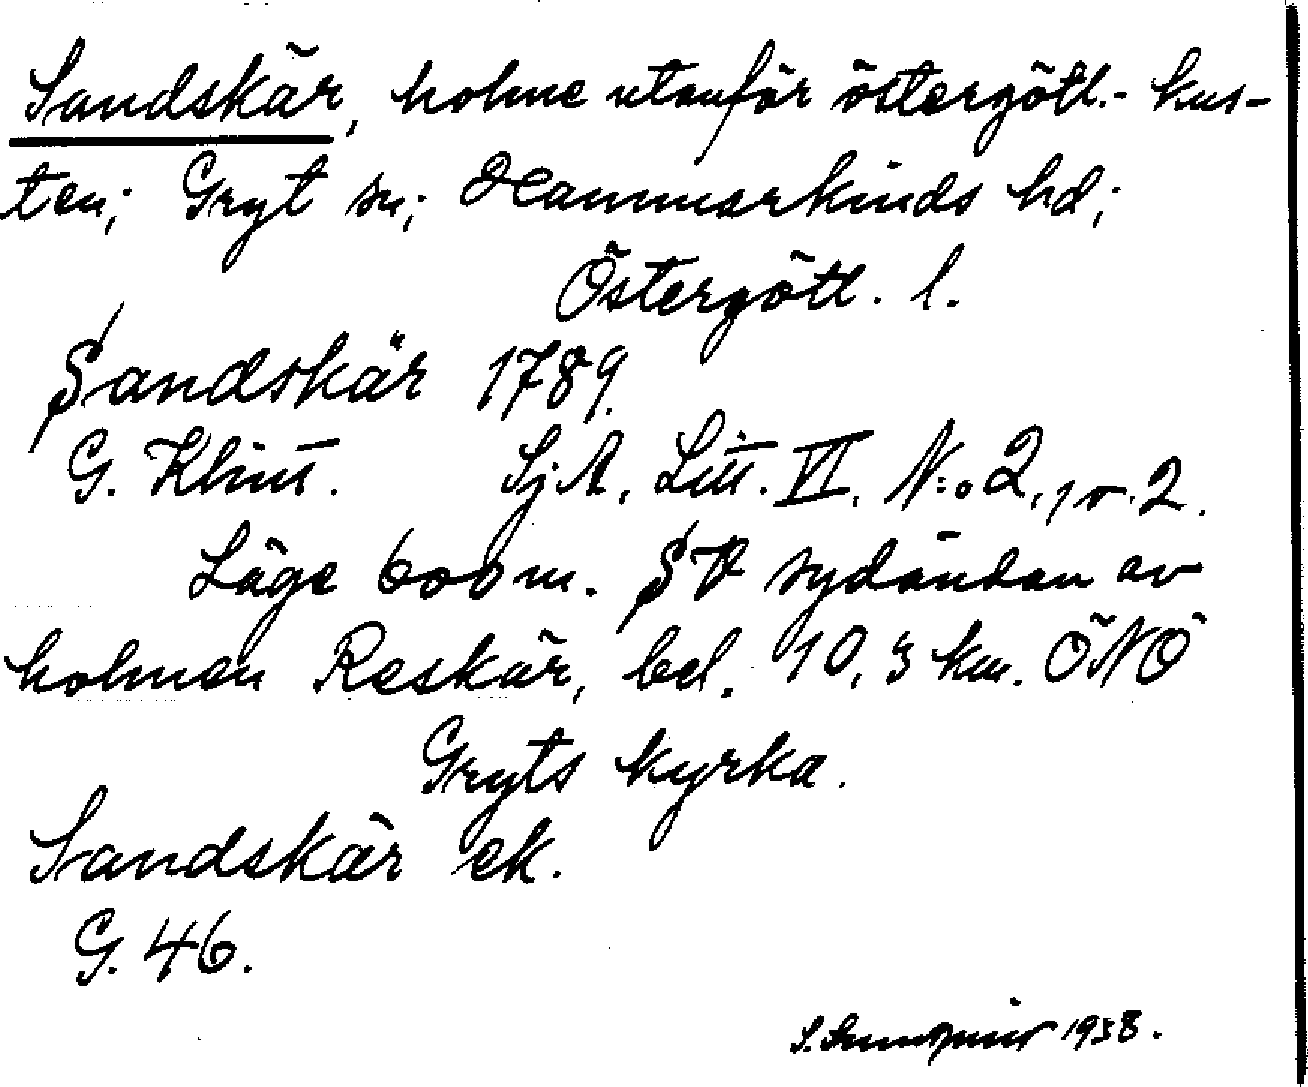 Sandskär, holme utanför östergötl.- kus-
ten; Gryt sn; Hammarkinds hd;
Östergötl. l.
Sandskär 1789.
G. Klint. SjA, Litt. VI, N:o 2, 1 o. 2.
Läge 600 m. SV sydändan av
holmen Reskär, bel. 10,3 km. ÖNÖ
Gryts kyrka.
Sandskär ek.
G. 46.
S. 1938.